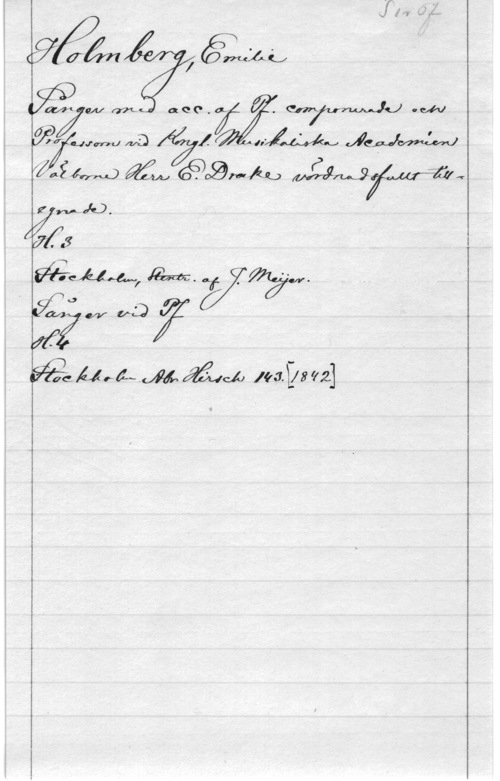 Sv 67
Holmberg, Emilie
Sånger med acc. af Pf. componerade och
Professorn vid Kongl. Musikaliska Academien
Välborne Herr E. Drake vördnadsfullt till-
egnade.
H. 3
Stockholm, Stentr. af J. Meijer.
Sånger vid Pf
H. 4
Stockholm Abr. Hirsch 143. [1842]